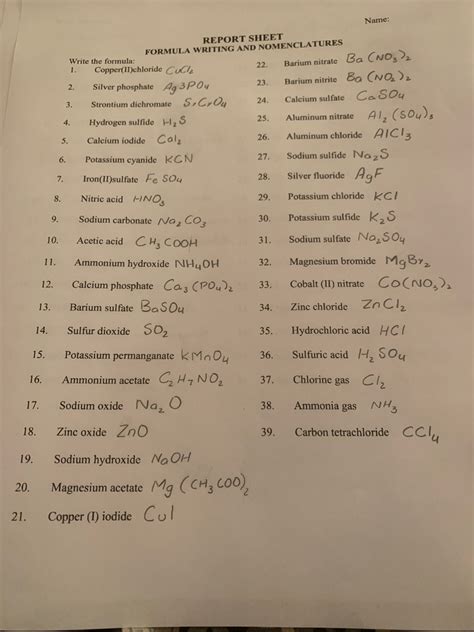 Name:
REPORT SHEET
FORMULA WRITING AND NOMENCLATURES
Write the formula:
1. Copper(II)chloride CuCl₂
2. Silver phosphate Ag3PO4
3. Strontium dichromate SrCrO4
4. Hydrogen sulfide H₂S
5. Calcium iodide CaI₂
6. Potassium cyanide KCN
7. Iron(II)sulfate FeSO4
8. Nitric acid HNO₃
9. Sodium carbonate Na₂CO₃
10. Acetic acid CH₃COOH
11. Ammonium hydroxide NH₄OH
12. Calcium phosphate Ca₃(PO₄)₂
13. Barium sulfate BaSO₄
14. Sulfur dioxide SO₂
15. Potassium permanganate KMnO₄
16. Ammonium acetate C₂H₇NO₂
17. Sodium oxide Na₂O
18. Zinc oxide ZnO
19. Sodium hydroxide NaOH
20. Magnesium acetate Mg(CH₃COO)₂
21. Copper (I) iodide CuI
22. Barium nitrate Ba(NO₃)₂
23. Barium nitrite Ba(NO₂)₂
24. Calcium sulfate CaSO₄
25. Aluminum nitrate Al₂(SO₄)₃
26. Aluminum chloride AlCl₃
27. Sodium sulfide Na₂S
28. Silver fluoride AgF
29. Potassium chloride KCl
30. Potassium sulfide K₂S
31. Sodium sulfate Na₂SO₄
32. Magnesium bromide MgBr₂
33. Cobalt (II) nitrate Co(NO₃)₂
34. Zinc chloride ZnCl₂
35. Hydrochloric acid HCl
36. Sulfuric acid H₂SO₄
37. Chlorine gas Cl₂
38. Ammonia gas NH₃
39. Carbon tetrachloride CCl₄